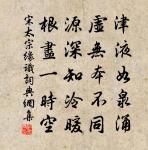 津液如泉涌
虛無本不同
源深知冷暖
根盡一時空
宋太宗緣識詞典網集